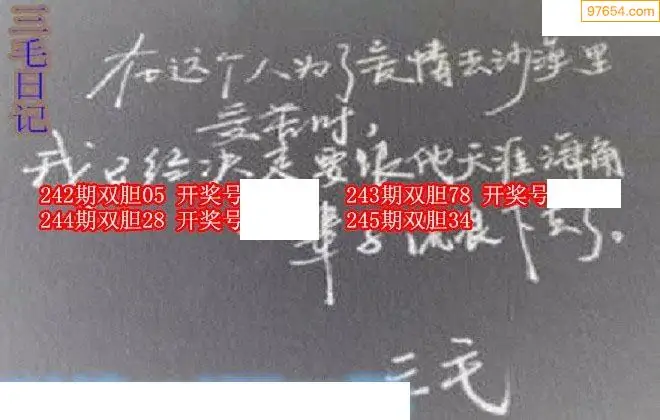 97654.com
三毛日记
在这个人为了爱情去沙漠里
受苦时，
我已经决定要跟他天涯海角
242期双胆05 开奖号
243期双胆78 开奖号
244期双胆28 开奖号
245期双胆34
辈子流浪下去了。
三毛